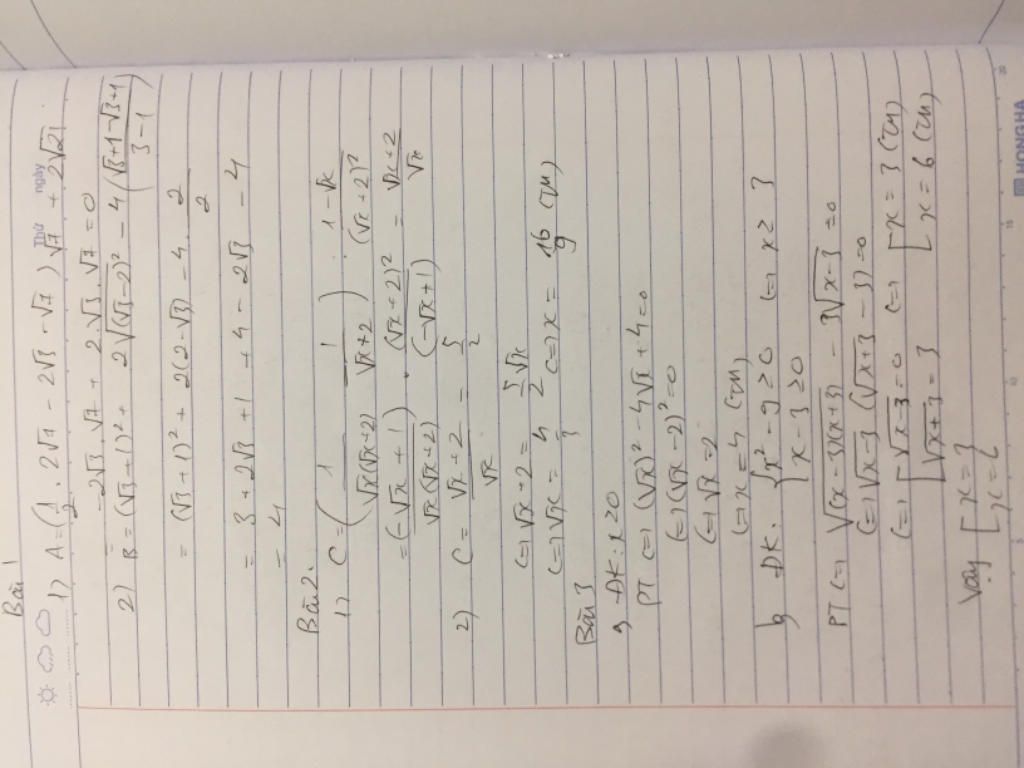 Bài 1
Thứ ngày
1) A = (1/2 . 2√7 - 2√3 - √7) √7 + 2√21
= -2√3 . √7 + 2√3 . √7 = 0
2) B = (√3+1)² + 2√(√3-2)² - 4(√3+1-√3+1 / 3-1)
= (√3+1)² + 2(2-√3) - 4 . 2/2
= 3 + 2√3 + 1 + 4 - 2√3 - 4
= 4
Bài 2.
1) C = (1/√x(√x+2) - 1/√x+2) . 1-√x/(√x+2)²
= (-√x+1)/√x(√x+2) . (√x+2)²/(-√x+1) = √x+2/√x
2) C = √x+2/√x = 5/2
(=) √x+2 = 5/2 √x
(=) √x = 4/3 (=) x = 16/9 (TM)
Bài 3
a, ĐK: x ≥ 0
PT (=) (√x)² - 4√x + 4 = 0
(=) (√x-2)² = 0
(=) √x = 2
(=) x = 4 (TM)
b, ĐK: { x² - 9 ≥ 0 (=) x ≥ 3
x - 3 ≥ 0
PT (=) √(x-3)(x+3) - 3√x-3 = 0
(=) √x-3 (√x+3 - 3) = 0
(=) [ √x-3 = 0 (=) [ x = 3 (TM)
√x+3 = 3 x = 6 (TM)
Vậy [ x = 3
x = 6
HONGHA